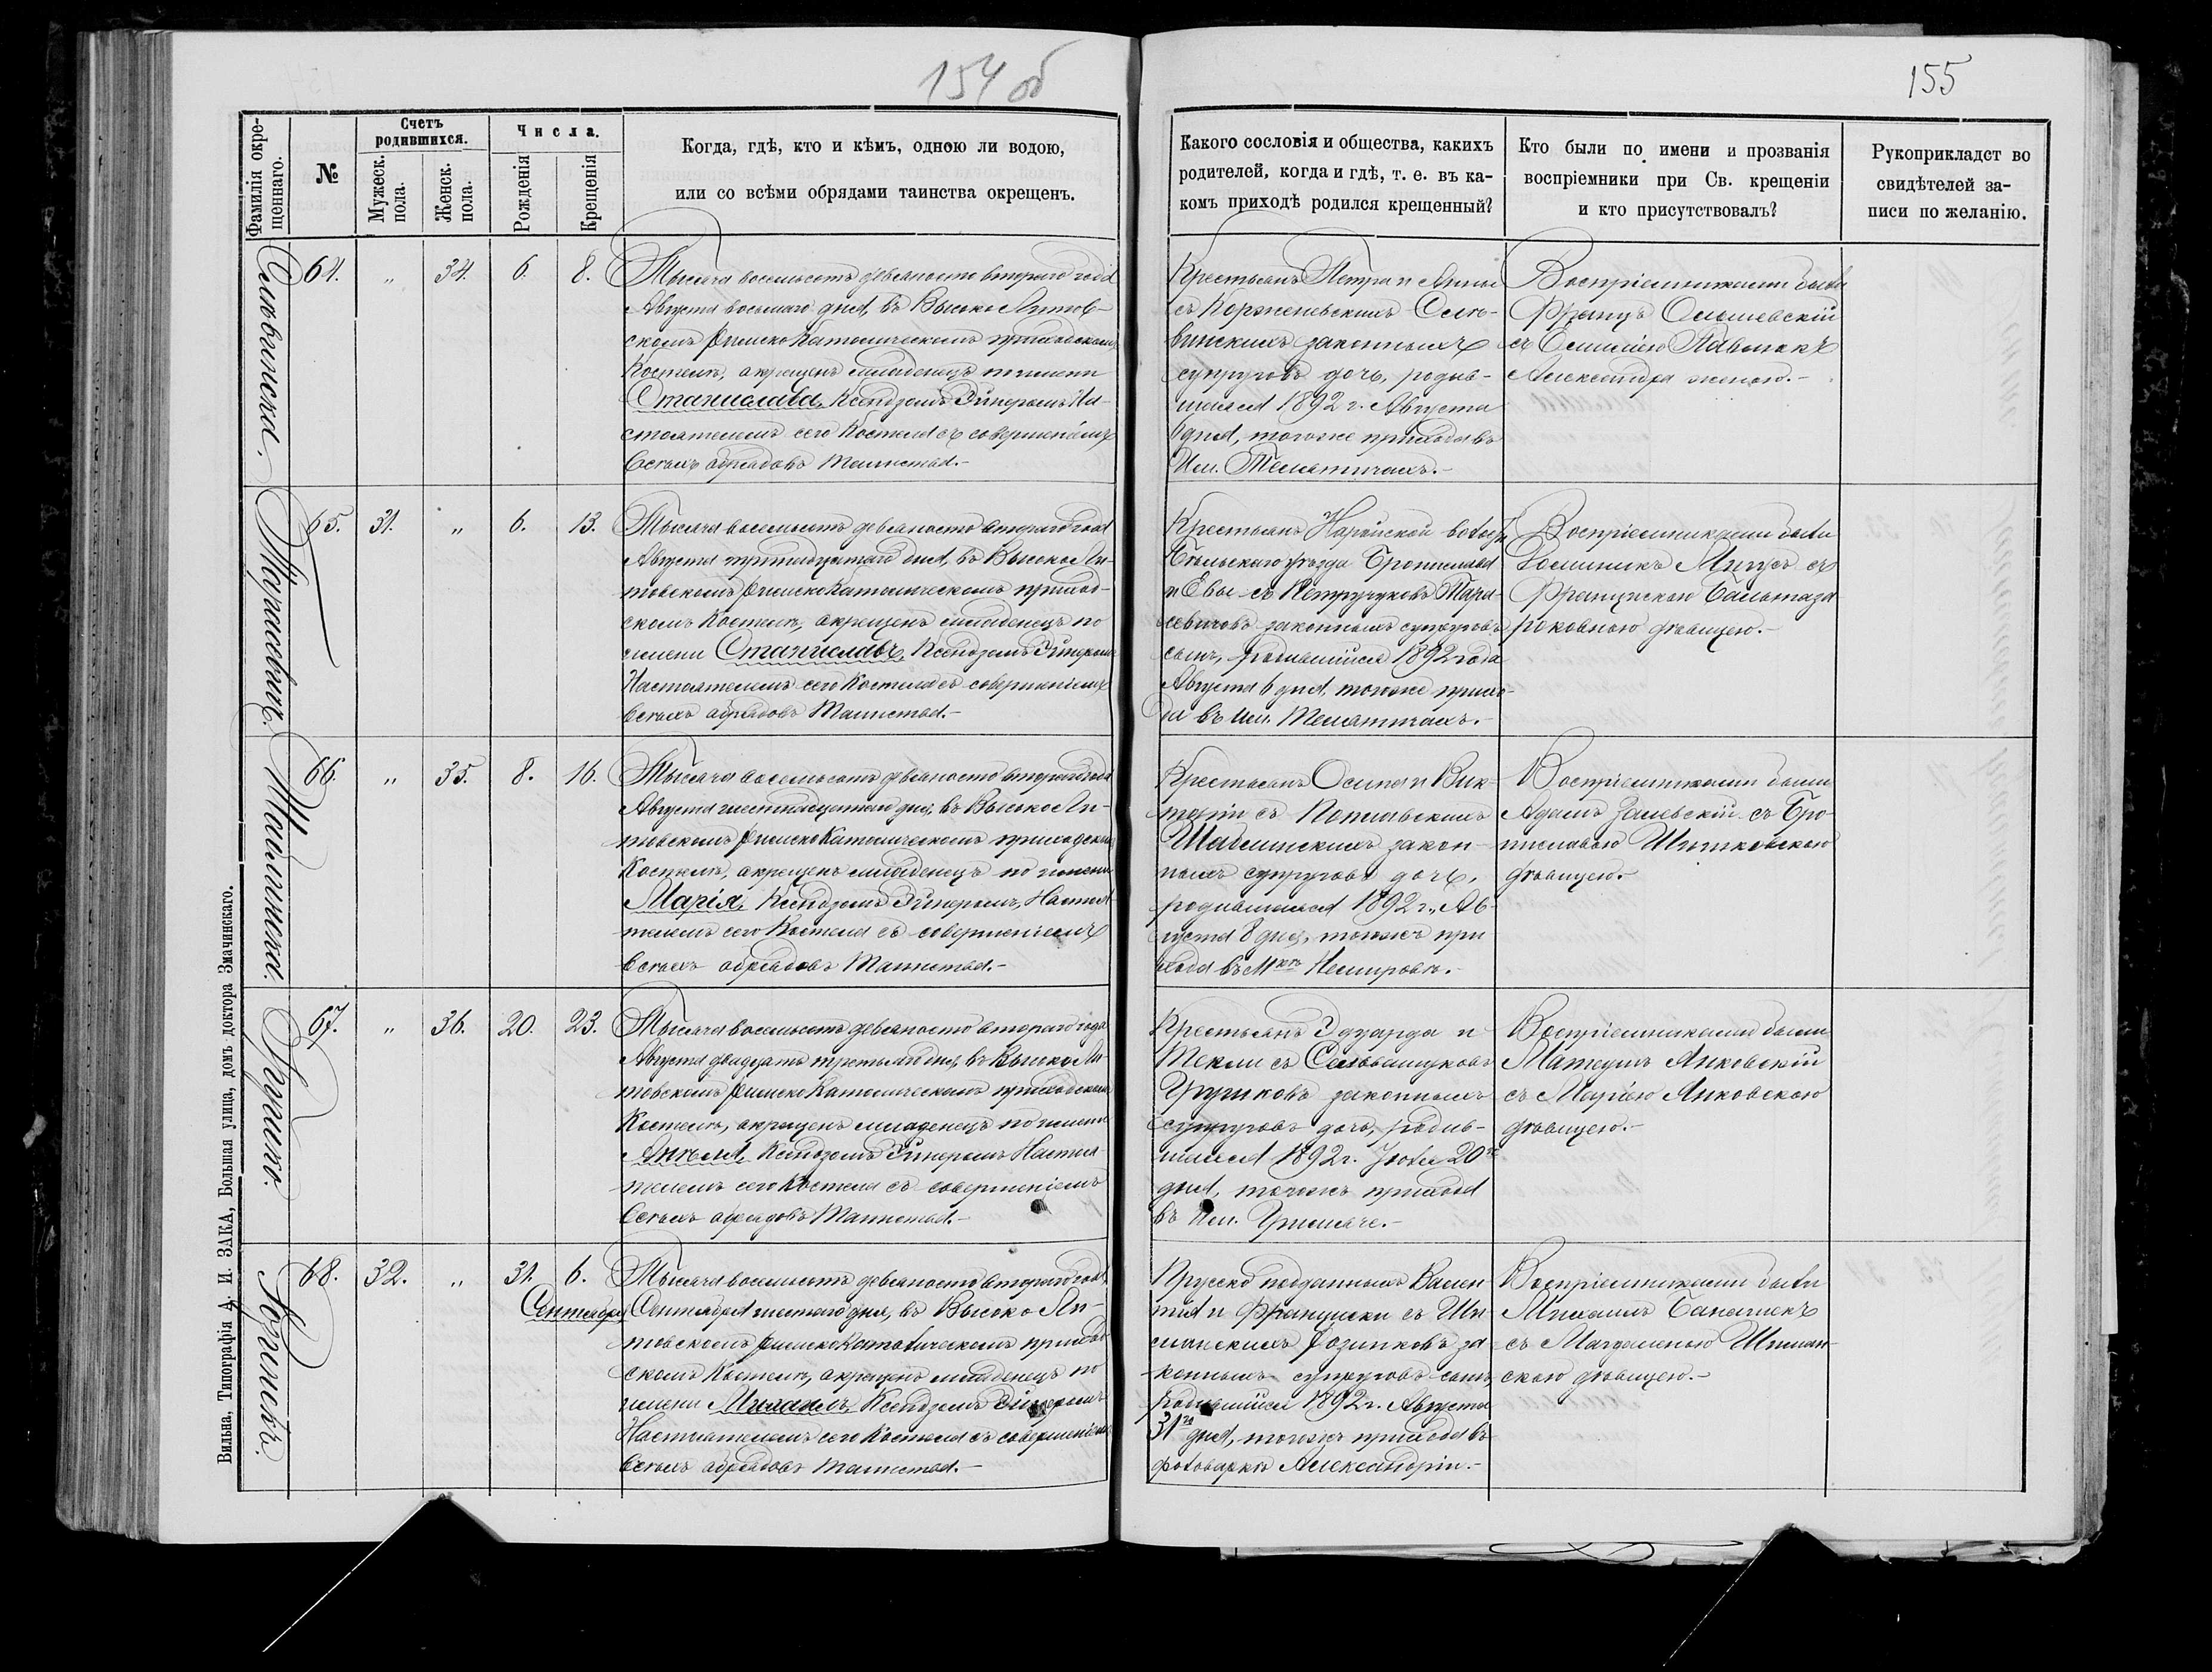 154 об
155
Фамилія окре-
щеннаго.
№
Счетъ
родившихся.
Мужеск.
пола.
Женск.
пола.
Числа.
Рожденія
Крещенія
Когда, гдѣ, кто и кѣмъ, одною ли водою,
или со всѣми обрядами таинства окрещенъ.
Какого сословія и общества, какихъ
родителей, когда и гдѣ, т. е. въ ка-
комъ приходѣ родился крещенный?
Кто были по имени и прозванія
воспріемники при Св. крещеніи
и кто присутствовалъ?
Рукоприкладст во
свидѣтелей за-
писи по желанію.
64. „ 34. 6. 8.
Тысяча восемьсотъ девяносто второго года
Августа восьмаго дня, въ Высоко Литов-
скомъ Римско Католическомъ приходскомъ
Костелѣ, окрещенъ младенецъ по имени
Станислава, Ксендзомъ На-
стоятелемъ сего Костела съ совершеніемъ
всѣхъ обрядовъ Таинства.-
Крестьянъ Петра и Анны
съ Корженевскихъ
законныхъ
супруговъ дочь, родив-
шаяся 1892 г. Августа
6 дня, тогоже прихода въ
Им. Телятичахъ.-
Воспріемниками были
Францъ
съ Емиліею
Александра женою.-
Тарасевичъ.
65. 31. „ 6. 13.
Тысяча восемьсотъ девяносто второго года
Августа тринадцатаго дня, въ Высоко Ли-
товскомъ Римско Католическомъ приход-
скомъ Костелѣ, окрещенъ младенецъ по
имени Станиславъ, Ксендзомъ
Настоятелемъ сего Костела съ совершеніемъ
всѣхъ обрядовъ Таинства.-
Крестьянъ волости
Бѣльскаго уѣзда Бронислава
и Евы съ Петручуковъ Тара-
севичовъ законныхъ супруговъ
сынъ, родившійся 1892 года
Августа 6 дня, тогоже прихо-
да въ Им. Телятичахъ.-
Воспріемниками были
Доминикъ съ
Францискою Бальтаза
ровною дѣвицею.-
Шаблинска.
66. „ 35. 8. 16.
Тысяча восемьсотъ девяносто второго года
Августа шестнадцатаго дня, въ Высоко Ли-
товскомъ Римско Католическомъ приходскомъ
Костелѣ, окрещенъ младенецъ по имени
Марія, Ксендзомъ Настоя
телемъ сего Костела съ совершеніемъ
всѣхъ обрядовъ Таинства.-
Крестьянъ Осипа и Вик-
торіи съ
Шаблинскихъ закон-
ныхъ супруговъ дочь,
родившаяся 1892 г., Ав-
густа 8 дня, тогоже при
хода въ Мкѣ Немировѣ.-
Воспріемниками были
Адамъ Залевскій съ Бро-
ниславою
дѣвицею.-
67. „ 36. 20. 23.
Тысяча восемьсотъ девяносто второго года
Августа двадцать третьяго дня, въ Высоко Ли-
товскомъ Римско Католическомъ приходскомъ
Костелѣ, окрещенъ младенецъ по имени
Ангеля, Ксендзомъ Настоя
телемъ сего Костела съ совершеніемъ
всѣхъ обрядовъ Таинства.-
Крестьянъ Эдуарда и
Текли съ
законныхъ
супруговъ дочь, родив-
шаяся 1892 г. Іюля 20го
дня, тогоже прихода
въ Им.
Воспріемниками были
Матеушъ Янковскій
съ Маріею Янковскою
дѣвицею.-
Розинекъ.
68. 32. „ 31. 6.
Сентября
Тысяча восемьсотъ девяносто второго года
Сентября шестаго дня, въ Высоко Ли-
товскомъ Римско Католическомъ приход-
скомъ Костелѣ, окрещенъ младенецъ по
имени Михаилъ, Ксендзомъ
Настоятелемъ сего Костела съ совершеніемъ
всѣхъ обрядовъ Таинства.-
Прусско подданныхъ Вален-
тія и Францишки съ Ши-
манскихъ Розинковъ за-
конныхъ супруговъ сынъ,
родившійся 1892 г. Августа
31го дня, тогоже прихода въ
фольваркѣ Александріи.-
Воспріемниками были
Михаилъ Банашекъ
съ Магдаленою Шиман-
скою дѣвицею.-
Вильна, Типографія А. И. ЗАКА, Большая улица, домъ доктора Змачинскаго.